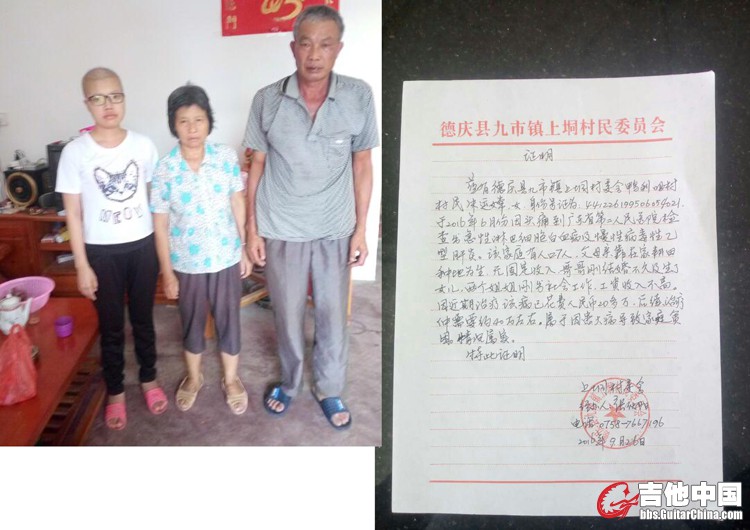 德庆县九市镇上垌村民委员会
证明
兹有德庆县九市镇上垌村委会
村民 女 身份号证为
于2016年6月份因头痛到广东省第二人民医院检
查出急性淋巴细胞白血病及慢性病毒性乙
型肝炎。该家庭有人口7人，父母亲靠在家耕田
种地为生，无固定收入，哥哥刚结婚不久及生了
女儿，两个姐姐刚出社会工作，工资收入不高。
因近期治疗该病已花费人民币20多万，后续治疗
仲需要约40万左右。属于因患大病导致家庭贫
困，情况属实。
特此证明
上垌村委会
电话：0758-7667196
2016年9月26日
吉他中国
bbs.GuitarChina.com